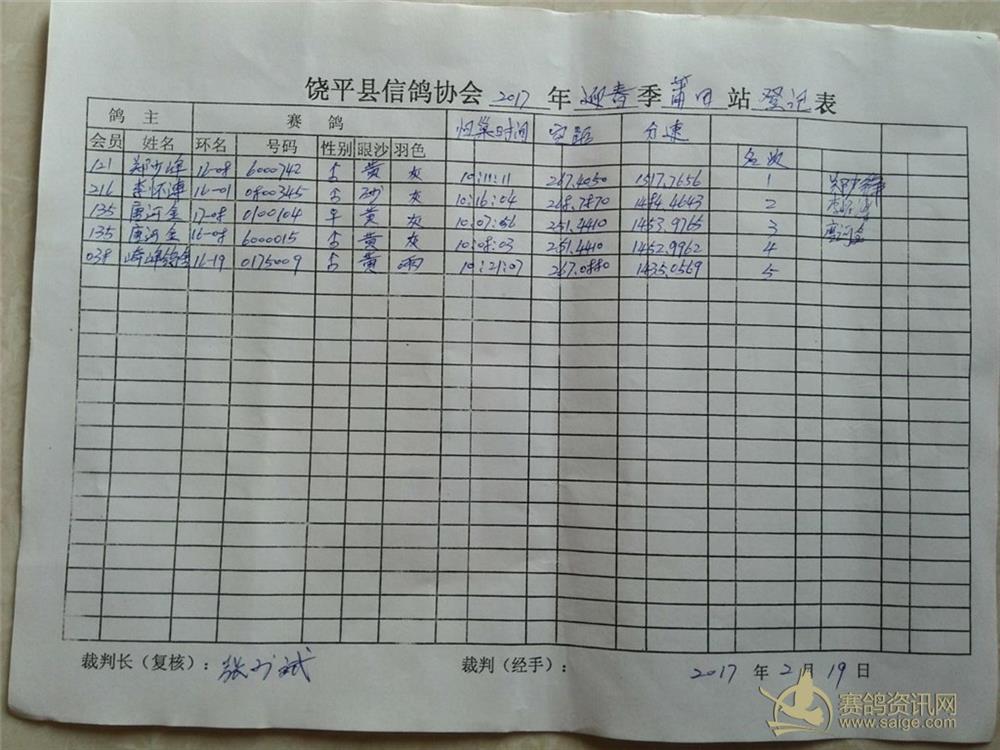 饶平县信鸽协会 2017 年 迎春 季 莆田 站 登记 表
鸽 主 赛 鸽 归巢时间 空距 分速
会员 姓名 环名 号码 性别 眼沙 羽色 名次
121 16-08 6000742 黄 灰 10:11:11 267.4050 1517.7656 1
216 李怀 16-01 0800345 沙 灰 10:16:04 268.7870 1484.4643 2
135 唐河金 17-08 0100104 黄 灰 10:07:56 251.4410 1453.9765 3 唐河金
135 唐河金 16-08 6000015 黄 灰 10:08:03 251.4410 1452.9962 4
038 16-19 0175009 黄 雨 10:21:07 267.0880 1435.0569 5
裁判长（复核）： 裁判（经手）： 2017 年 2 月 19 日
赛鸽资讯网
www.saige.com